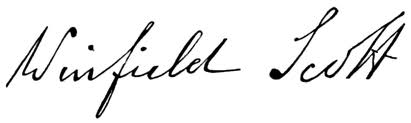 Winfield Scott